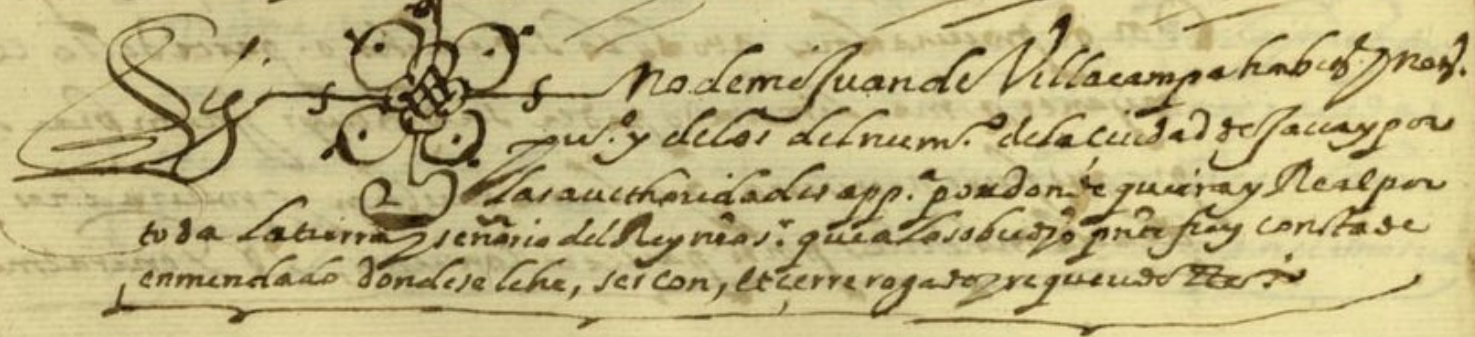 Sig s s no de mi Juan de Villacampa habit.r y not.o
pu.co y delos del num.o dela Ciudad de Jaca y por
las authoridades app.ca por donde quiera y Real por
toda la tierra y señorio del Rey nro s.r que a lo sobre dho pnte fuy consta de
enmendado donde se lehe, ses con, et cerre rogado y requerido